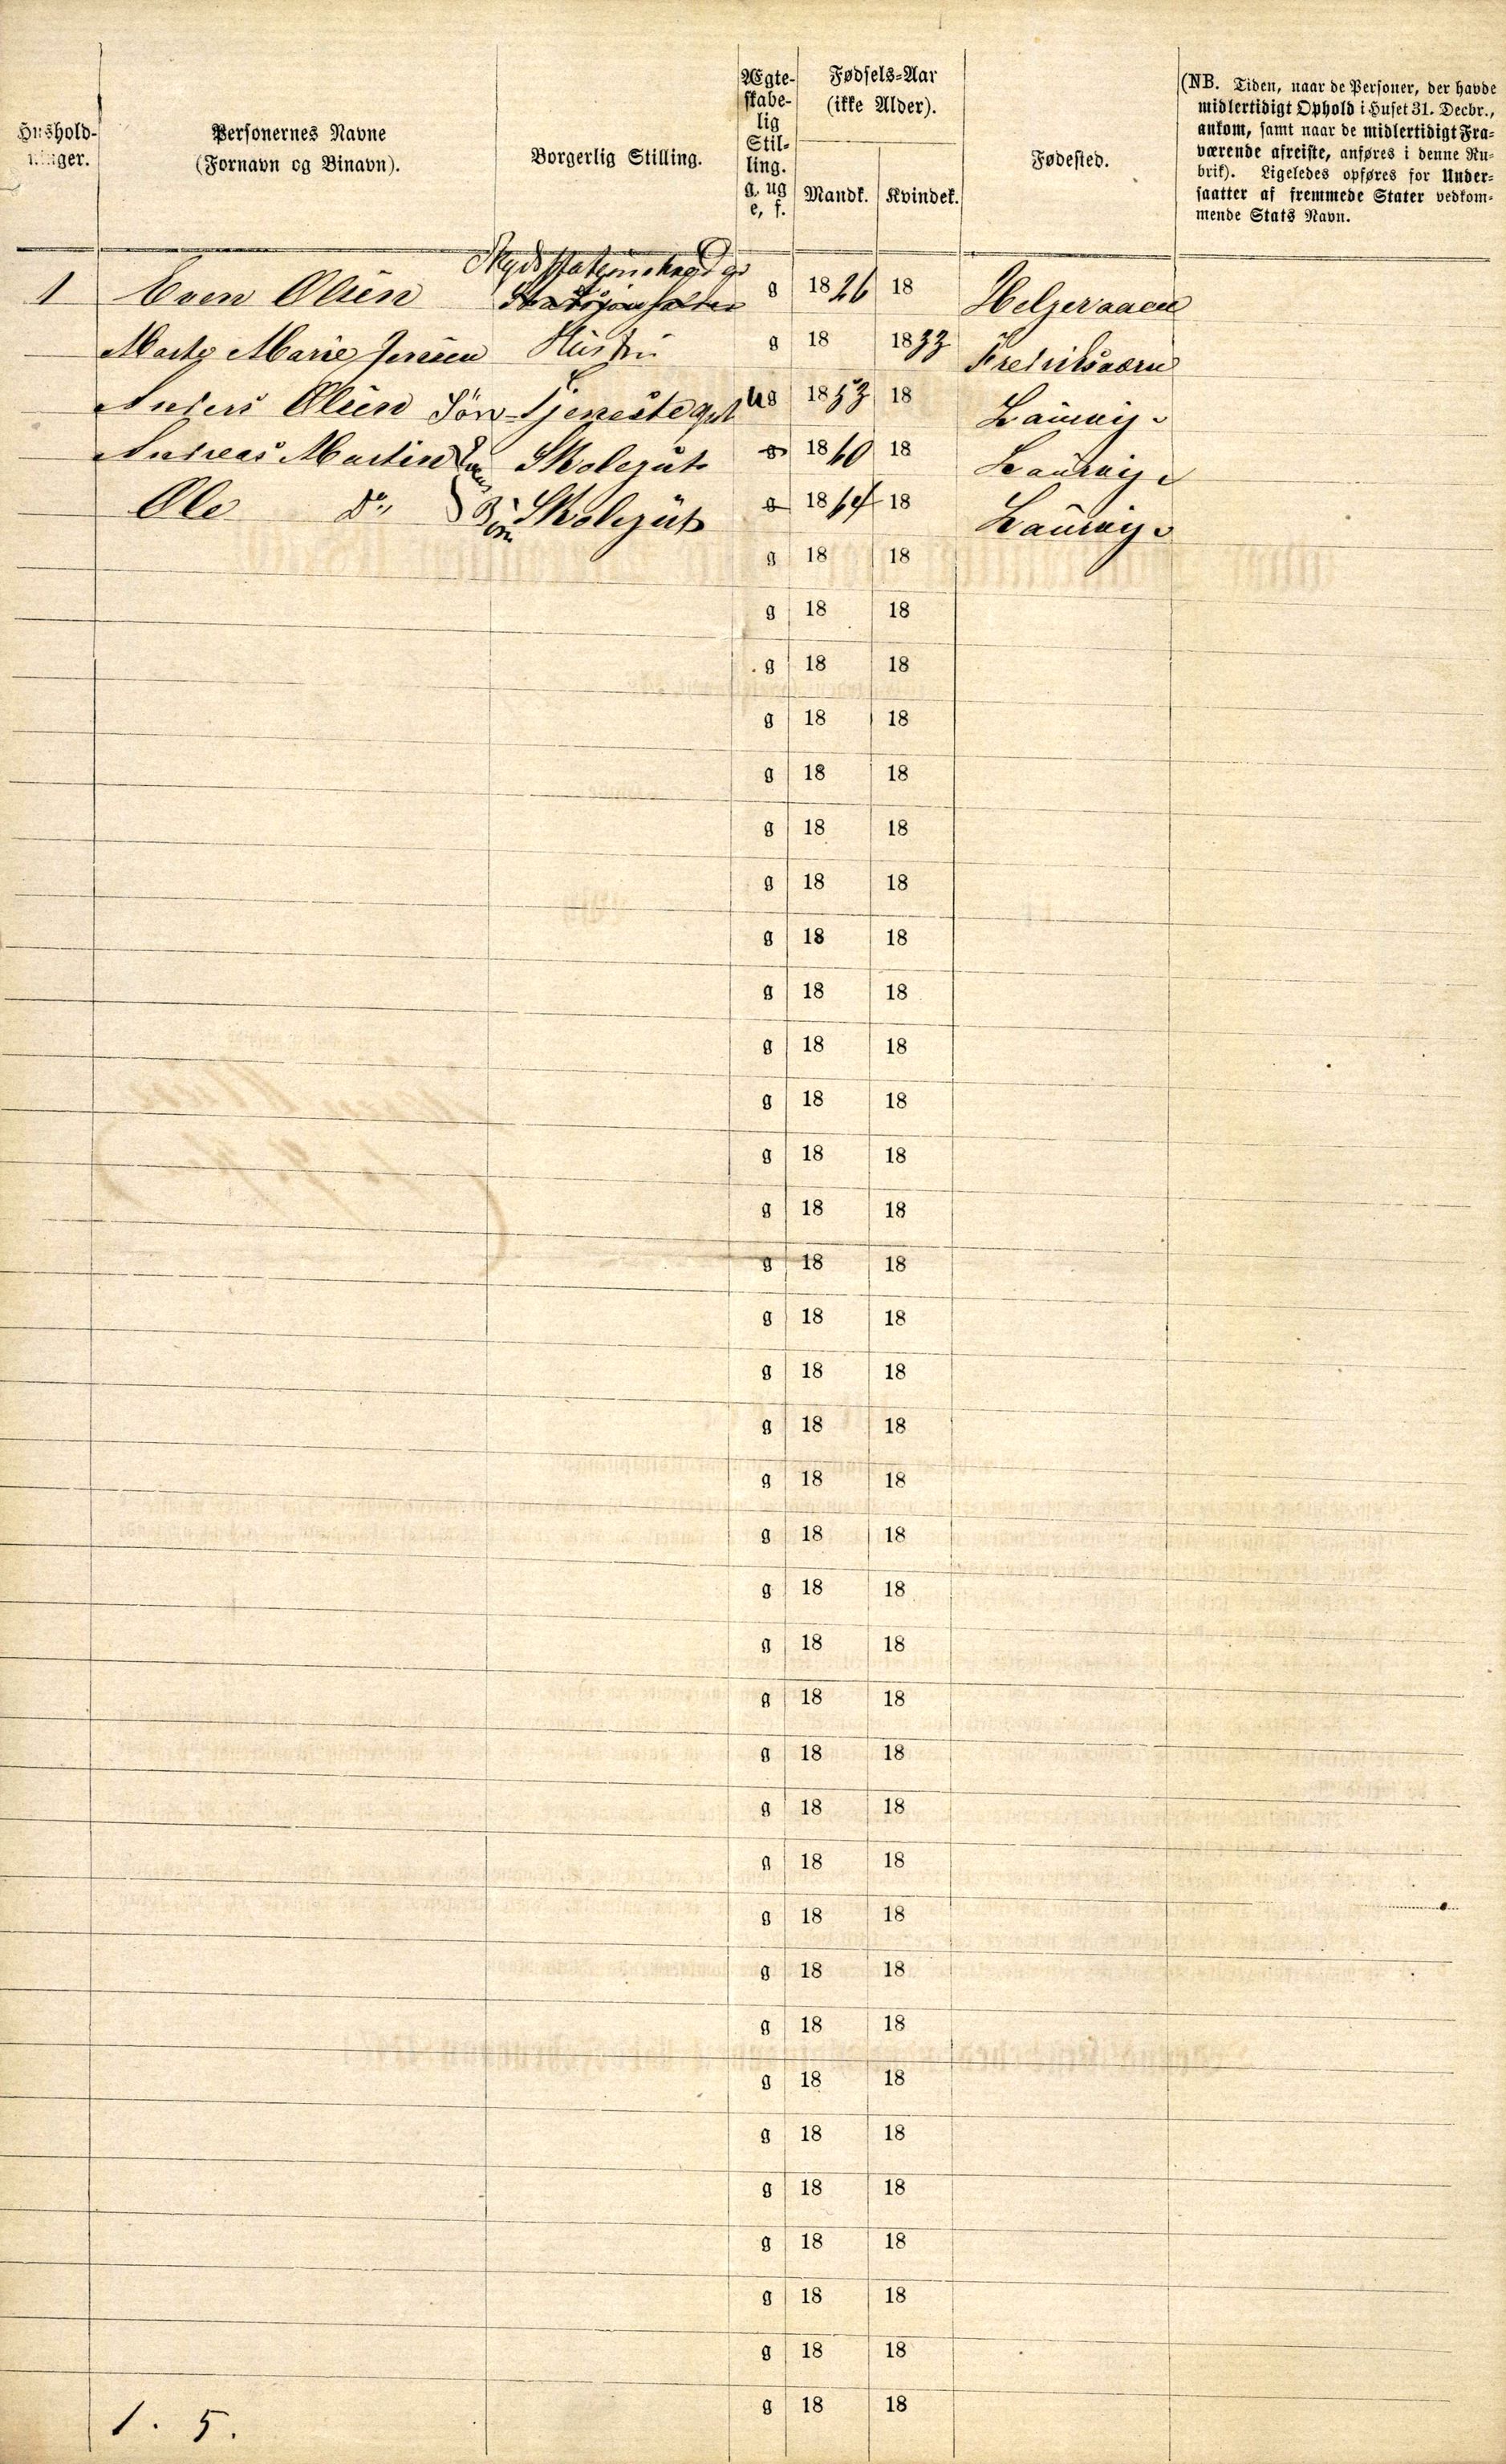 Hushold-
ninger.
Personernes Navne
(Fornavn og Binavn).
Borgerlig Stilling.
Ægte-
skabe-
lig
Stil-
ling.
g. ug
e, f.
Fødsels-Aar
(ikke Alder).
Mandk. Kvindek.
Fødested.
(NB. Tiden, naar de Personer, der havde
midlertidigt Ophold i Huset 31. Decbr.,
ankom, samt naar de midlertidigt Fra-
værende afreiste, anføres i denne Ru-
brik). Ligeledes opføres for Under-
saatter af fremmede Stater vedkom-
mende Stats Navn.
1 Even Olsen g 1826 18 Helgeraaen
Marie Jensen Hustru g 18 1833 Fredriksværn
Anders Olsen Søn Tjenestegut ug 1853 18 Laurvig
Andreas Martin Skolegut g 1860 18 Laurvig
Ole Do Søn Skolegut g 1864 18 Laurvig
g 18 18
g 18 18
g 18 18
g 18 18
g 18 18
g 18 18
g 18 18
g 18 18
g 18 18
g 18 18
g 18 18
g 18 18
g 18 18
g 18 18
g 18 18
g 18 18
g 18 18
g 18 18
g 18 18
g 18 18
g 18 18
g 18 18
g 18 18
g 18 18
g 18 18
g 18 18
g 18 18
g 18 18
g 18 18
g 18 18
g 18 18
g 18 18
g 18 18
g 18 18
g 18 18
1. 5.